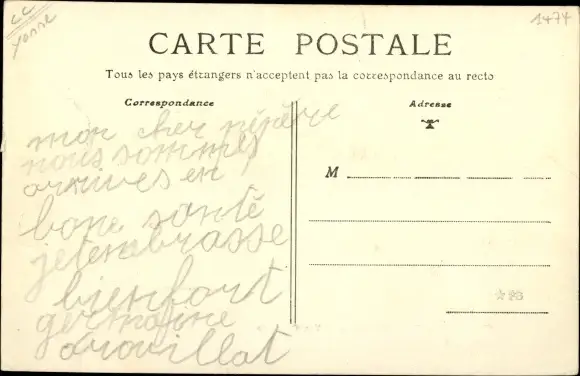 CC
Yonne
1474
CARTE POSTALE
Tous les pays étrangers n'acceptent pas la correspondance au recto
Correspondance
Adresse
mon cher pépère
nous sommes
arrives en
bone santé
jetembrasse
bienfort
germaine
drouillat
M